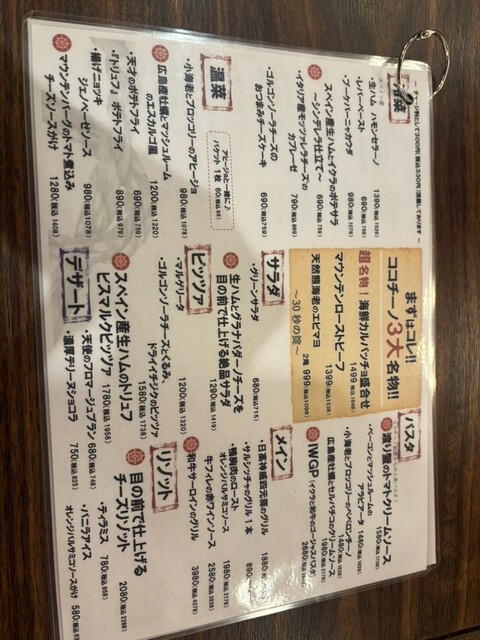 冷菜
・生ハム ハモンセラーノ 1390(税込1529)
・レバーペースト 690(税込759)
・ブーケバーニャカウダ 980(税込1078)
スペイン産生ハムとイクラのポテサラ
~シンデレラ仕立て~ 690(税込759)
・イタリア産モッツァレラチーズの
カプレーゼ 790(税込869)
・ゴルゴンゾーラチーズの
おつまみチーズケーキ 690(税込759)
温菜
アヒージョと一緒に♪
バケット 1枚 60(税込66)
・小海老とブロッコリーのアヒージョ 980(税込1078)
広島産牡蠣とマッシュルーム
のエスカルゴ風 1200(税込1320)
・天才のポテトフライ 690(税込759)
・『トリュフ』ポテトフライ 890(税込979)
・揚げニョッキ
ジェノベーゼソース 980(税込1078)
マウンテンバーグのトマト煮込み
チーズソースがけ 1280(税込1408)
まずはコレ!!
ココチーノ3大名物!!
超名物!海鮮カルパッチョ盛合せ
1499
マウンテンローストビーフ
1399
天然熊海老のエビマヨ
2尾 999(税込1098)
~30秒の掟~
サラダ
・グリーンサラダ 650(税込715)
生ハムとグラナパダーノチーズを
目の前で仕上げる絶品サラダ
1290(税込1419)
ピッツァ
・マルゲリータ 1200(税込1320)
・ゴルゴンゾーラチーズとくるみ
ドライイチジクのピッツァ
1580(税込1738)
スペイン産生ハムのトリュフ
ビスマルクピッツァ 1780(税込1958)
デザート
・天使のフロマージュブラン 680(税込748)
・濃厚テリーヌショコラ 750(税込825)
・ティラミス 780(税込858)
・バニラアイス
オレンジバルサミコソースがけ 580
パスタ
渡り蟹のトマトクリームソース
1580
・ベーコンとマッシュルームの
アラビアータ 1480
・小海老とブロッコリーのペペロンチーノ
1480
広島産牡蠣とセルバチコのクリームソース
1980(税込2178)
IWGP(イクラと和牛のゴージャスパスタ)
2680
メイン
・日高神威四元豚のグリル 1880
・サルシッチャのグリル 1本 890
・鴨胸肉のロースト
オレンジバルサミコソース 1980(税込2178)
・牛フィレの赤ワインソース
2580(税込2838)
和牛サーロインのグリル
3980(税込4378)
リゾット
目の前で仕上げる
チーズリゾット
2080(税込2288)